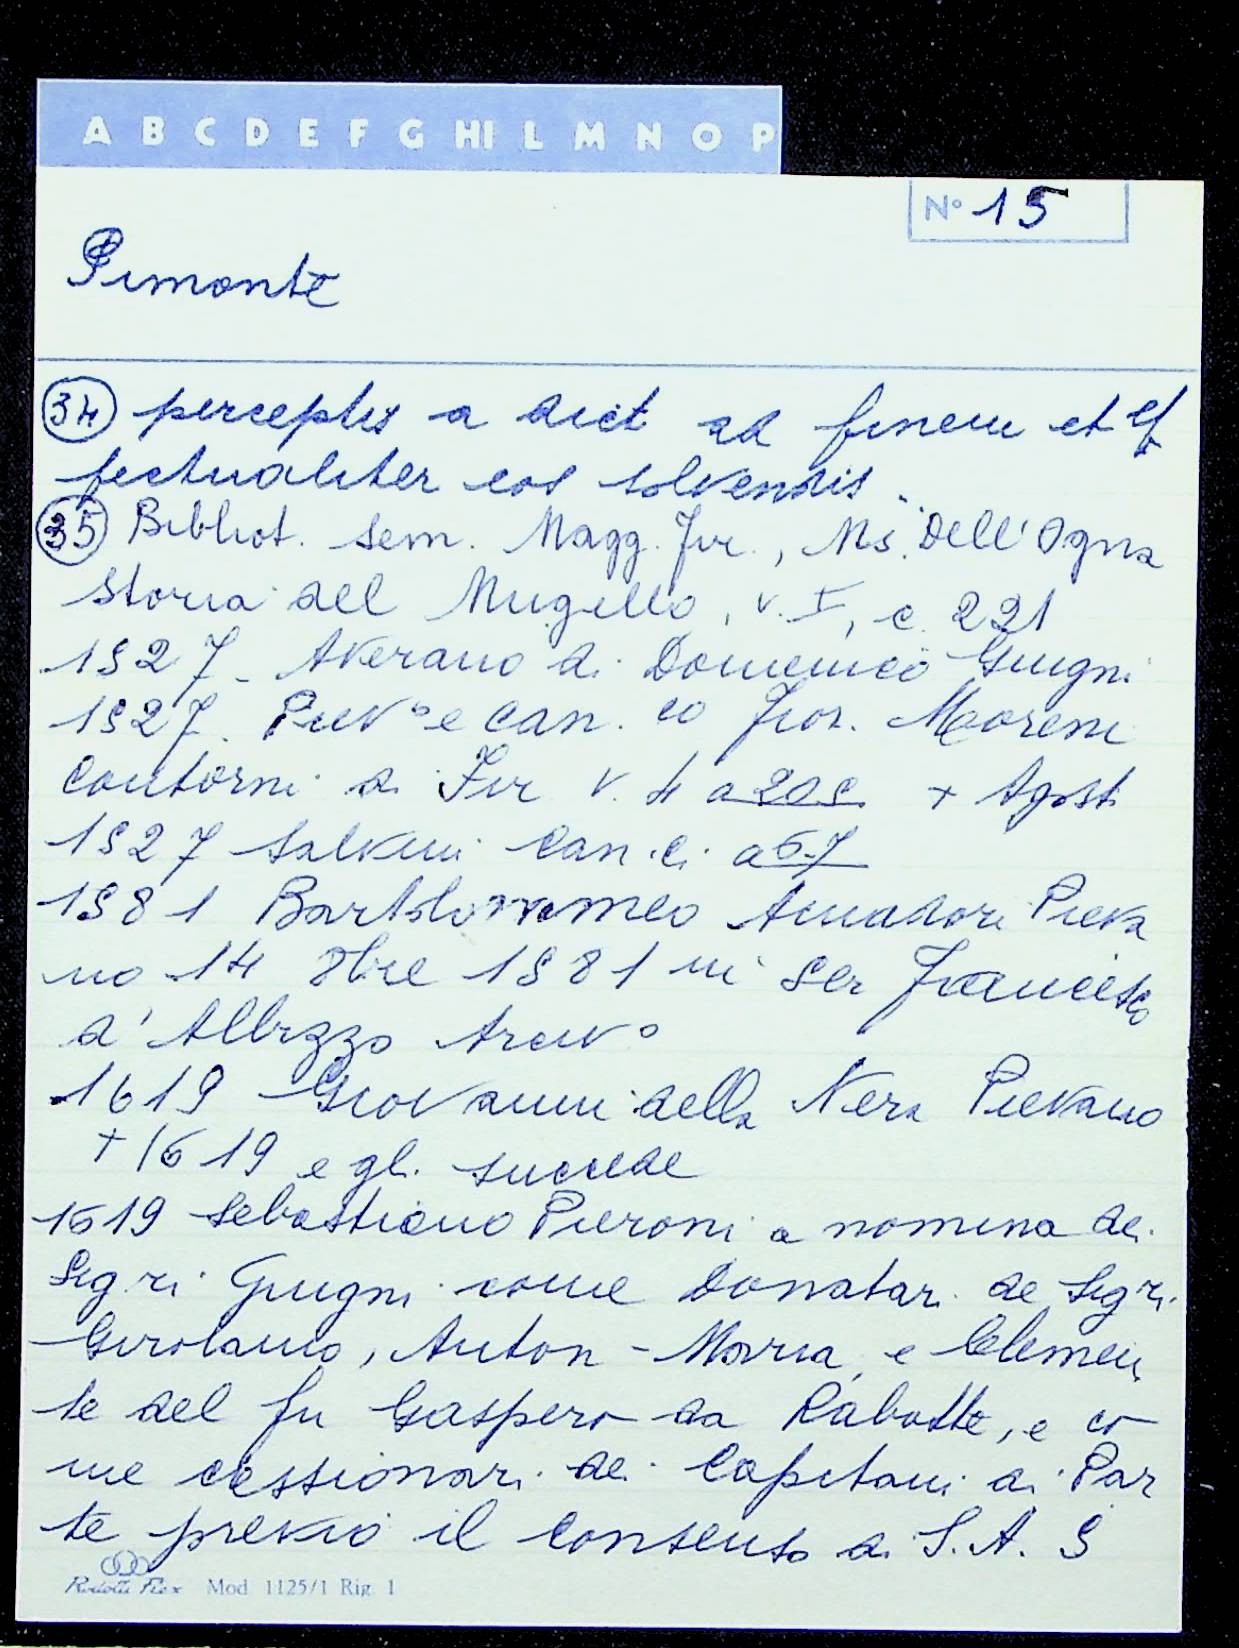 A B C D E F G HI L M N O P
N° 15
Pimonte
34 perceptis a dict ad finem et ef
fectualiter eos solvendis.
35 Bibliot. Sem. Magg. Fir., Ms. Dell'Ogna
Storia del Mugello, v. I, c. 221
1527 - Averano di Domenico Giugni
1527. Piev° e Can. co Fior. Moreni
Contorni di Fir v. 4 a 205 + Agost.
1527 Salvini Can.ci a 67
1581 Bartolommeo Amadori Pieva
no 14 8bre 1581 in Ser Francesco
d'Albizzo Arciv°
1619 Giovanni della Nera Pievano
+ 1619 e gli succede
1619 Sebastiano Pieroni a nomina dei
Sigri Giugni come Donatari de Sigri
Girolamo, Anton-Maria e Clemen
te del fu Gaspero da Rabatte, e co
me cessionari dei Capitani di Par
te previo il consenso di S. A. S
Mod 1125/1 Rig 1